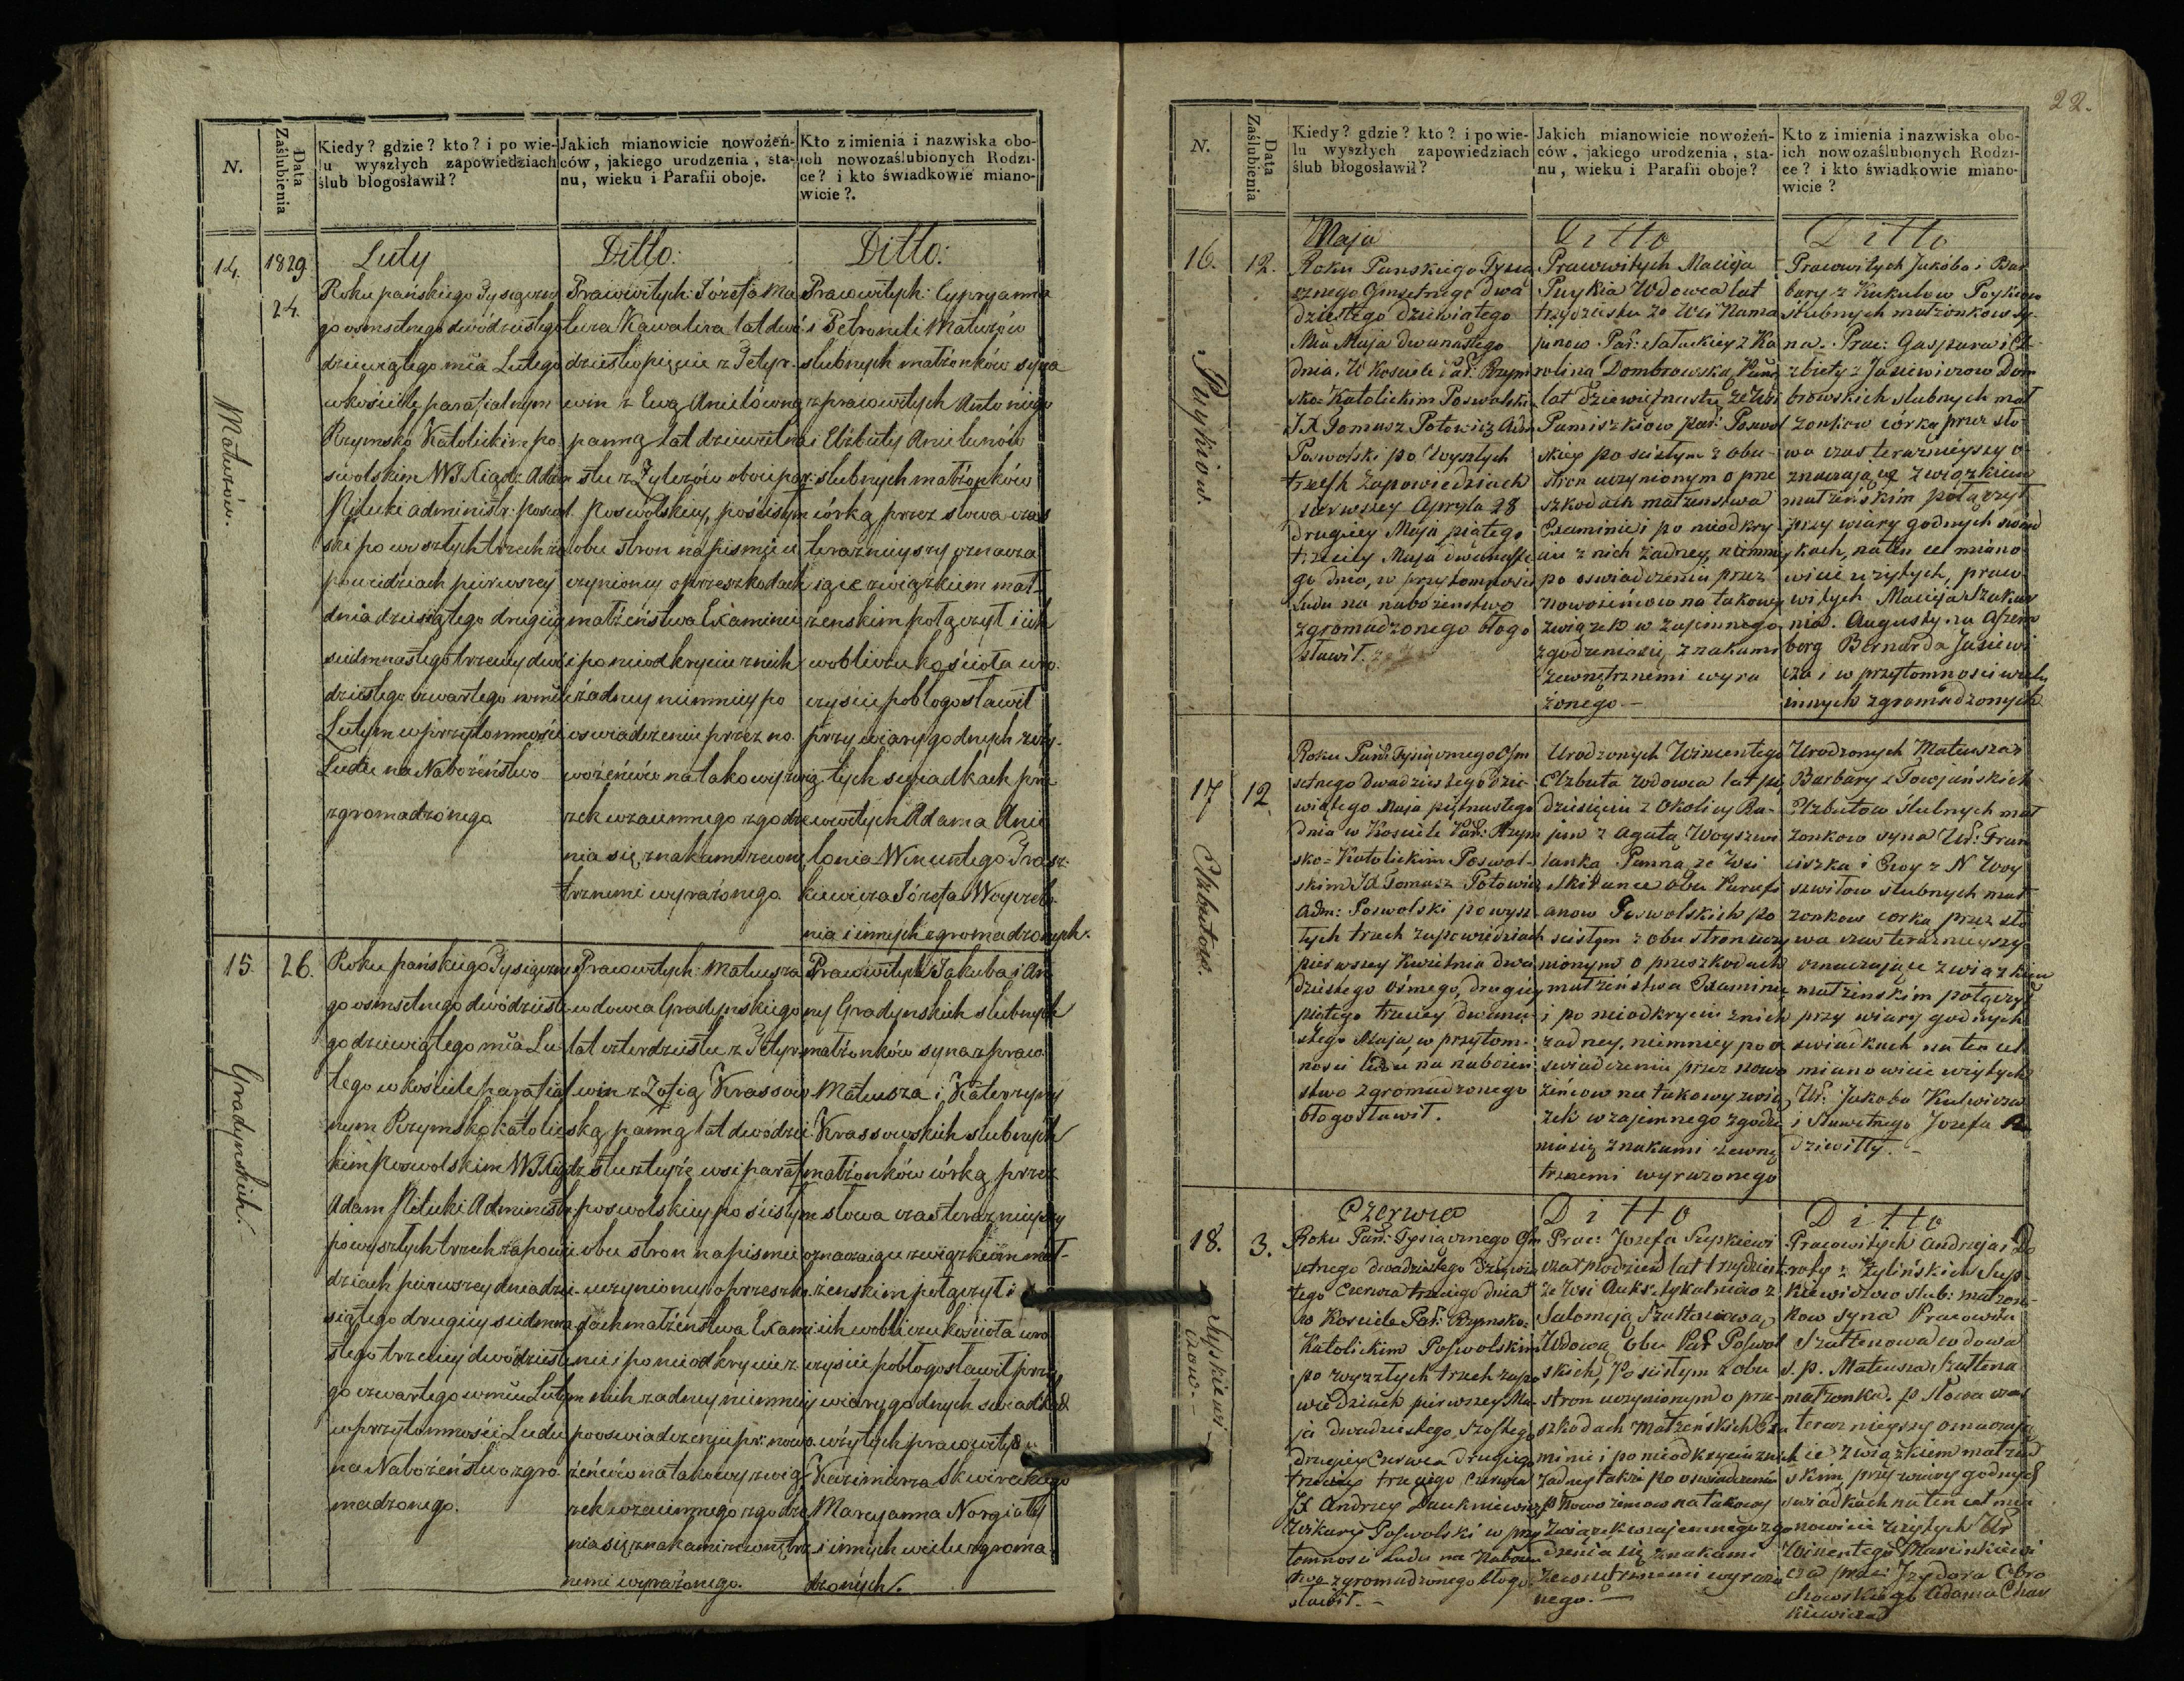 N.
Data Zaślubienia
Kiedy? gdzie? kto? i po wie-
lu wyszłych zapowiedziach
ślub błogosławił?
Jakich mianowicie nowożeń-
ców, jakiego urodzenia, sta-
nu, wieku i Parafii oboje.
Kto z imienia i nazwiska obo-
ich nowozaślubionych Rodzi-
ce? i kto świadkowie miano-
wicie?.
14.
1829
24.
Maturów.
Luty
Roku pańskiego Tysiączne
go osmsetnego dwódziestego
dziewiątego mca Lutego
w kościele parafialnym
Rzymsko Katolickim po
swolskim WJXiądz Adam
administr: poswol
ski po wyszłych trzech za
powiedziach pierwszey
dnia dziesiątego drugiey
siedmnastego trzeciey dwó
dziestego czwartego w mcu
Lutym w przytomności
Ludu na Nabożeństwo
zgromadzonego
Ditto:
Pracowitych: Józefa Ma
tura Kawalera lat dwó
dziestopięcie z Petyr-
win z Ewą Anielówną
panną lat dziewiętna
stu z Zylerów oboie par:
Poswolskiey, po ścisłym
z obu stron na piśmie u
czynioney o przeszkodach
małżeństwa Examinie
i po nieodkryciu z nich
żadney niemniey po
oswiadczeniu przez no
wożeńców na takowy zwią
zek wzaiemnego zgodze
nia się, znakami zewnę
trznemi wyrażonego.
Ditto:
Pracowitych: Cypryanna
i Petroneli Maturów
slubnych małżonków syna
z pracowitych Antoniego
i Elżbiety Anielunów
slubnych małżonków
córką przez słowa czas
teraznieyszy oznacza
iące związkiem mał-
żenskim połączył i ich
w obliczu kościoła uro
czyscie pobłogosławił
przy wiary godnych uży-
tych swiadkach pra
cowitych Adama Anie
lonia Wincentego
kiewicza Józefa
nia i innych zgromadzonych.
15.
26.
Gradynskich.
Roku pańskiego Tysiączne
go osmsetnego dwódzieste
go dziewiątego mca Lu
tego w kościele parafial
nym Rzymsko katolic
kim poswolskim WJXiądz
Adam Administr:
po wyszłych trzech zapowie
dziach pierwszey dnia dzie
siątego drugiey siedmna
stego trzeciey dwódzieste
go czwartego w mcu Lutym
w przytomności Ludu
na Nabożeństwo zgro
madzonego.
Pracowitych: Mateusza
wdowca Gradynskiego
lat czterdziestu z Petyr
win z Zofią Krassow
ską panną lat dwódzie
stu z teyże wsi paraf:
poswolskiey po ścisłym
z obu stron na piśmie
uczynioney o przeszko
dach małżeństwa Exami
nie i po nieodkryciu z
nich żadney niemniey
po oswiadczeniu pr: nowo
żeńców na takowy zwią
zek wzaiemnego zgodze
nia się znakami zewnętrz
nemi wyrażonego.
Pracowitych Jakuba i An
ny Gradynskich slubnych
małżonków syna z praco
Mateusza i Katerzyny
Krassowskich slubnych
małżonków córką przez
słowa czas teraznieyszy
oznaczaiące związkiem mał-
żenskim połączył i
ich w obliczu kościoła uro
czyscie pobłogosławił przy
wiary godnych swiadkach
użytych pracowitych
Kazimierza Skwireckiego
Maryanna
i innych wielu zgroma
dzonych.
22.
N.
Data Zaślubienia
Kiedy? gdzie? kto? i po wie-
lu wyszłych zapowiedziach
ślub błogosławił?
Jakich mianowicie nowożeń-
ców, jakiego urodzenia, sta-
nu, wieku i Parafii oboje?
Kto z imienia i nazwiska obo-
ich nowozaślubionych Rodzi-
ce? i kto świadkowie miano-
wicie?
16.
12.
Puykiow.
Maja
Roku Panskiego Tysią
cznego Osmsetnego dwa
dziestego dziewiątego
Mca Maja dwunastego
dnia, W Kosciele Par: Rzym
sko=Katolickim Poswolskim
JX Tomasz Potowicz Adm
Poswolski po wyszłych
trzech Zapowiedziach
pierwszey Apryla 28
drugiey Maja piątego
trzeciey Maja dwunaste
go dnia, w przytomności
Ludu na nabożenstwo
zgromadzonego błogo
sławił.
Ditto
Pracowitych Macieja
Puykia Wdowca lat
trzydziestu ze Wsi Nama
junow Par: z Ka
roliną Dombrowską Panną
lat dziewiętnastu ze Wsi
Pamiszkiow par: Poswol
skiey po scisłym z obu
stron uczynionym o prze
szkodach małżenstwa
Examinie i po nieodkry
ciu z nich żadney, niemniey
po oswiadczeniu przez
nowożeńcow na takowy
związek w zajemnego
zgodzenia się znakami
zewnętrznemi wyra
żonego —
Ditto
Pracowitych Jakóba i Bar
bary z Kukulow Poykiow
slubnych małżonkow sy
na. Prac: Gaspara i El
zbiety z Jasiewiczow Dom
browskich slubnych mał
żonkow córką przez sło
wa czas teraznieyszy o
znaczające związkiem
małżeńskim połączył
przy wiary godnych swiad
kach, na ten cel miano
wicie użytych, praco
witych Macieja
Augustyna
Bernarda Jasiewi
cza i w przytomności wielu
innych zgromadzonych
17
12
Elzbutow.
Roku Pań: Tysiącznego Osm
setnego dwadziestego dzie-
wiątego Maja piętnastego
dnia w Kosciele Par: Rzym
sko=Katolickim Poswol-
skim JX Tomasz Potowicz
Adm: Poswolski po wysz
łych trzech zapowiedziach
pierwszey Kwietnia dwa
dziestego ósmego, drugiey
piątego trzeciey dwuna
stego Maja, w przytom-
ności ludu na nabożen
stwo zgromadzonego
błogosławił.
Urodzonych Wincentego
Elzbuta wdowca lat pię
dziesięciu z Okolicy Ra-
jun z Agatą Woyszwi
łanką Panną ze Wsi
obu Parafi
anow Poswolskich po
scisłym z obu stron uczy
nionym o przeszkodach
małżeństwa Examinie
i po nieodkryciu z nich
żadney, niemniey po o
swiadczeniu przez nowo
żeńcow na takowy zwią
zek wzajemnego zgodze
nia się znakami zewnę
trznemi wyrażonego
Urodzonych Mateusza i
Barbary z Towjańskich
Elzbutow slubnych mał
żonkow syna Ur: Fran
ciszka i Ewy z N Woy
szwiłow slubnych mał
żonkow corką przez sło
wa czas teraznieyszy
oznaczające związkiem
małżenskim połączył
przy wiary godnych
swiadkach na ten cel
mianowicie użytych
Ur: Jakóba
i Sławetnego Jozefa Ra
dziwiłły. —
18.
3.
Sypkiewi-
czow —
Czerwca
Roku Pań: Tysiącznego Osm
setnego dwadziestego dziewią
tego Czerwca trzeciego dnia
w Kosciele Par: Rzymsko=
Katolickim Poswolskim
po wyszłych trzech zapo
wiedziach pierwszey Ma-
ja dwudziestego szostego
drugiey Czerwca drugiego
trzeciey trzeciego Czerwca
JX Andrzey Daukniewicz
Wikary Poswolski w przy
tomności Ludu na Nabożen
stwo zgromadzonego błogo
sławił. —
Ditto
Prac: Jozefa Sypkiewi
cza młodziena lat trzydziest
ze Wsi z
Salomeją Szałtenową
Wdową obu Par Poswol
skich, Po scisłym z obu
stron uczynionym o prze
szkodach Małżeńskich Exa
minie i po nieodkryciu z nich
żadney także po oswiadczeniu
p Nowożencow na takowy
Związek wzajemnego zgo
dzenia się znakami
zewnętrznemi wyrażo
nego. —
Ditto
Pracowitych Andrzeja i Do
roty z Zylińskich Syp-
kiewiczow slub: małżon-
kow syna Pracowitą
Szałtenową wdową
ś. p. Mateusza Szałtena
małżonką. p słowa czas
teraznieyszy oznaczają
ce związkiem małżeń
skim przy wiary godnych
swiadkach na ten cel mia
nowicie użytych Ur
Wincentego Marcinkiewi
cza prac: Izydora
Adama